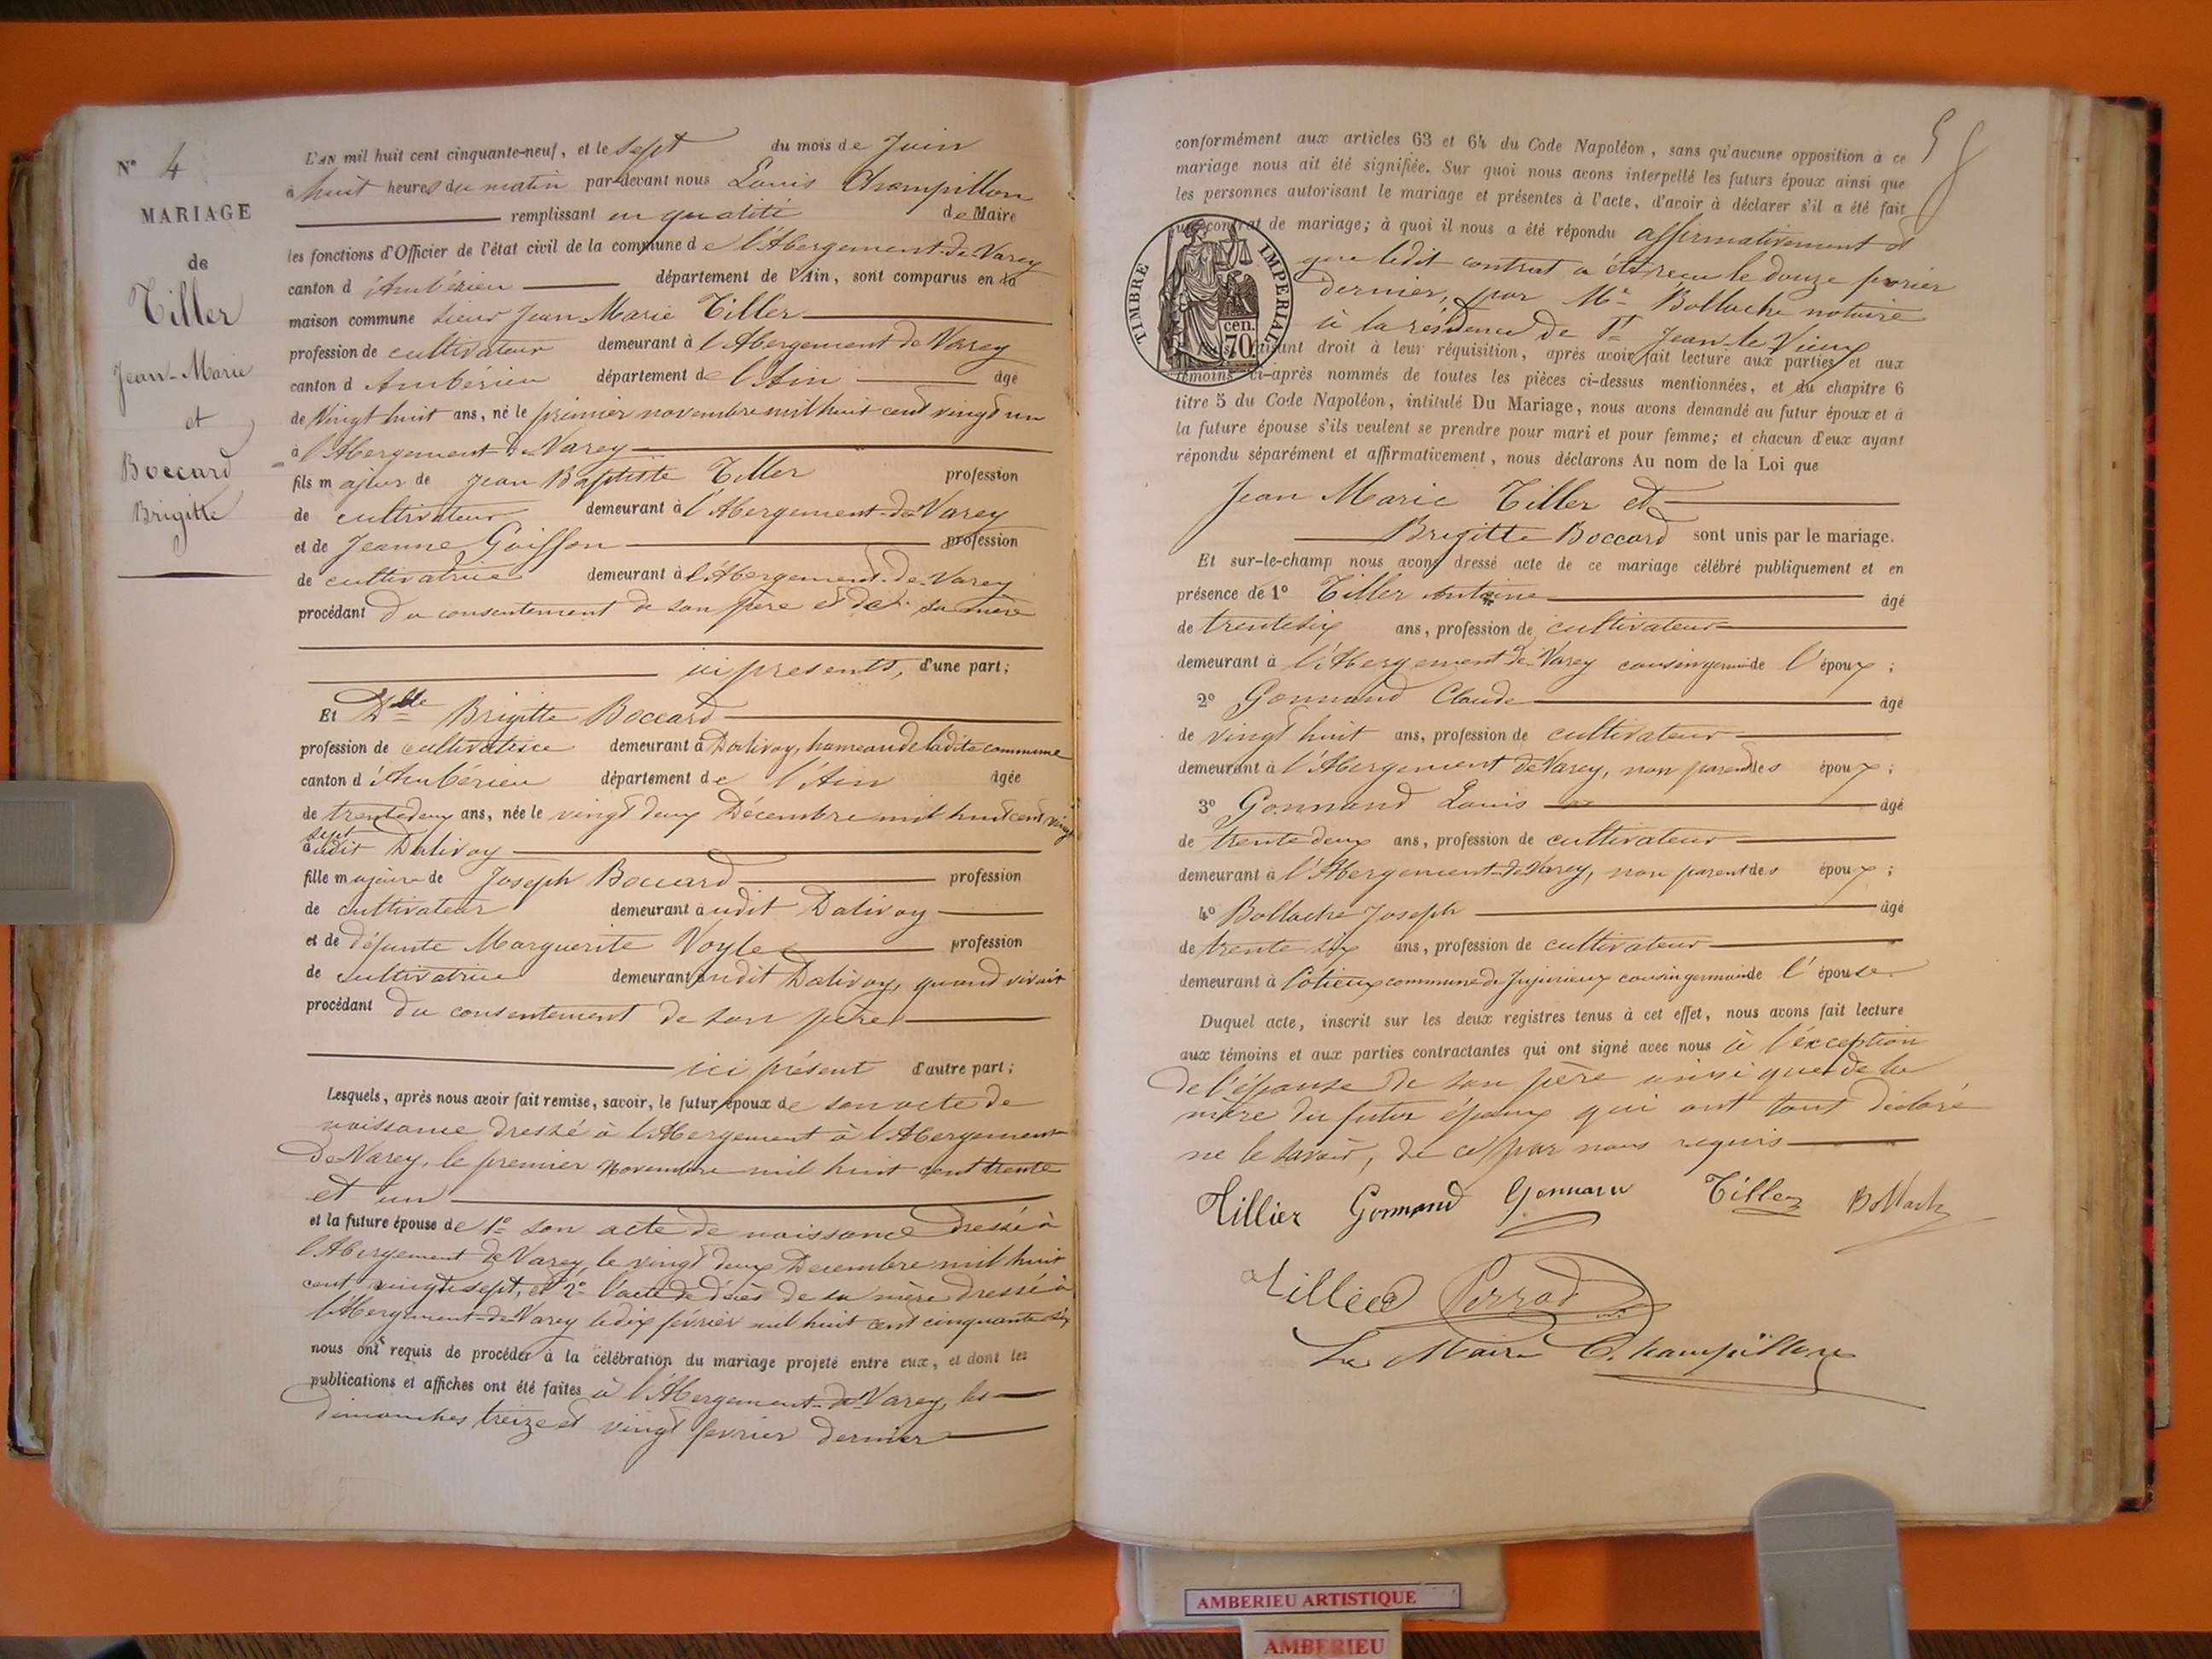 N° 4
MARIAGE
de
Tiller
Jean-Marie
et
Boccard
Brigitte
L'AN mil huit cent cinquante-neuf, et le sept du mois de Juin
à huit heures du matin par-devant nous Louis Champillon
remplissant en qualité de Maire
les fonctions d'Officier de l'état civil de la commune de l'Abergement-de-Varey
canton d'Ambérieu département de l'Ain, sont comparus en la
maison commune sieur Jean-Marie Tiller
profession de cultivateur demeurant à l'Abergement de Varey
canton d Ambérieu département de l'Ain âgé
de Vingt huit ans, né le premier novembre mil huit cent vingt un
à l'Abergement-de-Varey
fils majeur de Jean Baptiste Tiller profession
de cultivateur demeurant à l'Abergement-de-Varey
et de Jeanne Goiffon profession
de cultivatrice demeurant à l'Abergement-de-Varey
procédant du consentement de son père et de sa mère
ici présents, d'une part;
Et Dlle Brigitte Boccard
profession de cultivatrice demeurant à Dalivoy, hameau de ladite commune
canton d'Ambérieu département de l'Ain âgée
de trente deux ans, née le vingt deux Décembre mil huit cent vingt
sept
audit Dalivoy
fille majeure de Joseph Boccard profession
de cultivateur demeurant audit Dalivoy
et de défunte Marguerite Voyle profession
de cultivatrice demeurant audit Dalivoy, quand vivait
procédant du consentement de son père
ici présent d'autre part;
Lesquels, après nous avoir fait remise, savoir, le futur époux de son acte de
naissance dressé à l'Abergement à l'Abergement
de Varey, le premier Novembre mil huit cent trente
et un
et la future épouse de 1° son acte de naissance dressé à
l'Abergement de Varey, le vingt deux Decembre mil huit
cent vingt sept, et 2° l'acte de décès de sa mère dressé à
l'Abergement-de-Varey le dix février mil huit cent cinquante six
nous ont requis de procéder à la célébration du mariage projeté entre eux, et dont les
publications et affiches ont été faites à l'Abergement-de-Varey, les
dimanches treize et vingt février dernier
conformément aux articles 63 et 64 du Code Napoléon, sans qu'aucune opposition à ce
mariage nous ait été signifiée. Sur quoi nous avons interpellé les futurs époux ainsi que
les personnes autorisant le mariage et présentes à l'acte, d'avoir à déclarer s'il a été fait
un contrat de mariage; à quoi il nous a été répondu affirmativement et
que ledit contrat a été reçu le douze fevrier
dernier, par Me Bollache notaire
à la résidence de St Jean-le-Vieux
TIMBRE IMPERIAL
cen. 70
faisant droit à leur réquisition, après avoir fait lecture aux parties et aux
témoins ci-après nommés de toutes les pièces ci-dessus mentionnées, et du chapitre 6
titre 5 du Code Napoléon, intitulé Du Mariage, nous avons demandé au futur époux et à
la future épouse s'ils veulent se prendre pour mari et pour femme; et chacun d'eux ayant
répondu séparément et affirmativement, nous déclarons Au nom de la Loi que
Jean Marie Tiller et
Brigitte Boccard sont unis par le mariage.
Et sur-le-champ nous avons dressé acte de ce mariage célébré publiquement et en
présence de 1° Tiller Antoine âgé
de trente six ans, profession de cultivateur
demeurant à l'Abergement de Varey cousin germain de l'époux;
2° Gonnand Claude âgé
de vingt huit ans, profession de cultivateur
demeurant à l'Abergement de Varey, non parent des époux;
3° Gonnand Louis âgé
de trente deux ans, profession de cultivateur
demeurant à l'Abergement-de-Varey, non parent des époux;
4° Bollache Joseph âgé
de trente six ans, profession de cultivateur
demeurant à Cotieux commune de Jujurieux cousin germain de l'épouse
Duquel acte, inscrit sur les deux registres tenus à cet effet, nous avons fait lecture
aux témoins et aux parties contractantes qui ont signé avec nous à l'exception
de l'épouse de son père ainsi que de la
mère du futur époux qui ont tout déclaré
ne le savoir, de ce par nous requis
Tillier Gonnand Gonnand Tiller Bollach
Tillier Perrod
Le Maire Champillon
AMBERIEU ARTISTIQUE
AMBERIEU